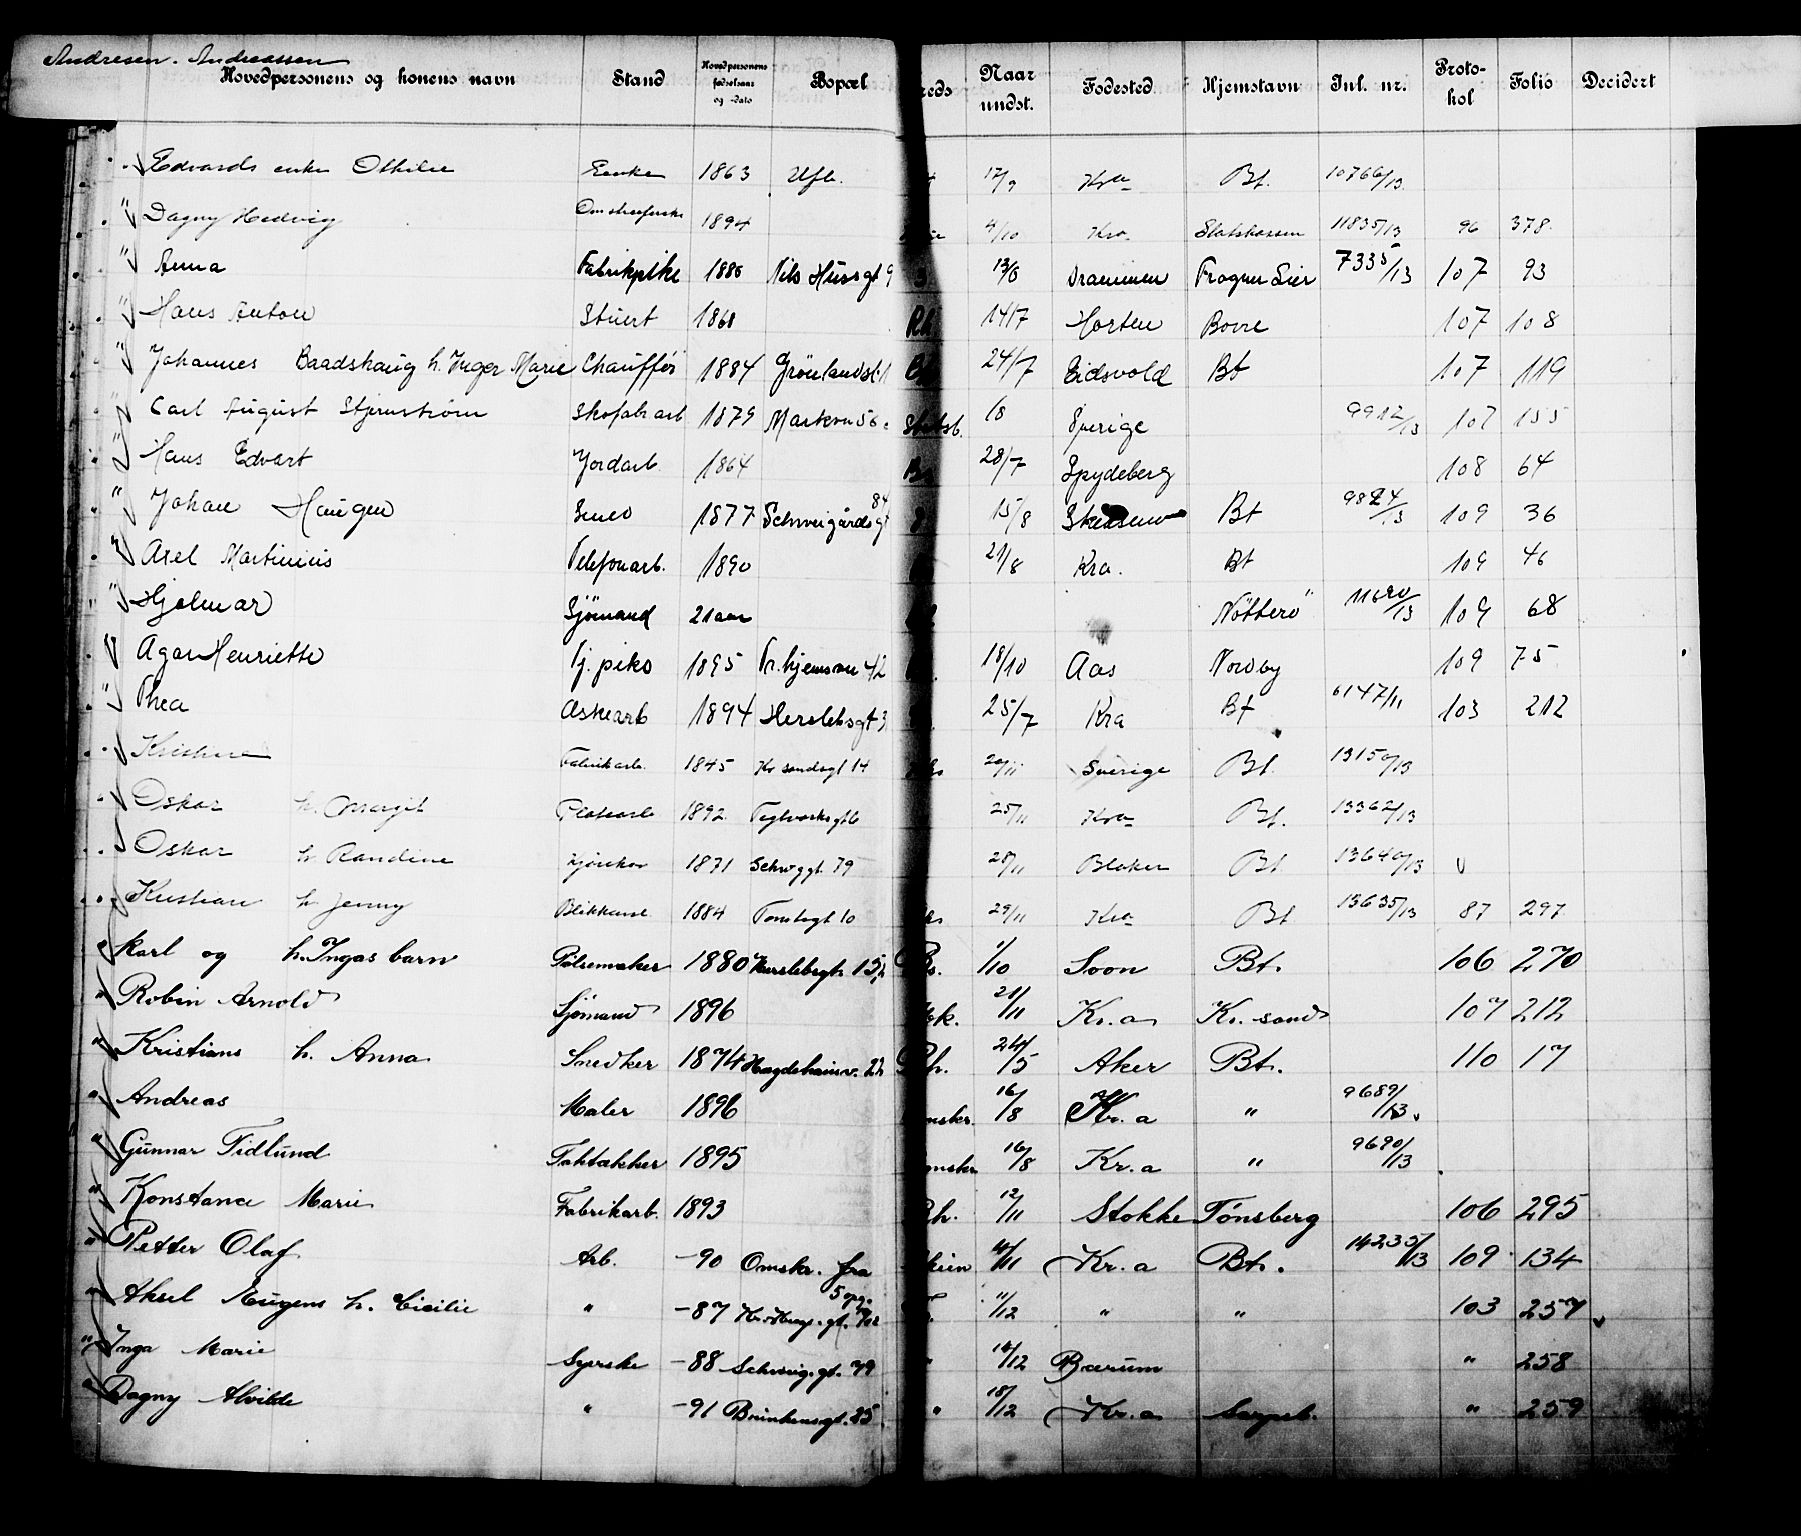 Andresen. Andreassen
Hovedpersonens og konens navn Stand Hovedpersonens fødselsaar og -dato Bopæl reds Naar undst. Fødested Hjemstavn Inl. nr. Proto- kol Folio Decidert
Edvards enke Othilie Enke 1863 Ufb. 17/9 Kra Bt. 10766/13
" Dagny Hedvig 1894 4/10 Kra. Statskassen 11835/13 96 378.
" Anna Fabrikpike 1886 Nils Hussgt 9 13/6 Drammen Frogner Lier 7335/13 107 93
" Hans Anton Stuert 1868 Rh 14/7 Horten Borre 107 108
" Johannes Baadshaug h. Inger Marie Chauffør 1884 Grønlandsl. 24/7 Eidsvold Bt 107 119
" Carl August Stjernstrøm Skofabr arb 1879 Markvn 56 18 Sverige 9912/13 107 155
" Hans Edvart Jordarb. 1864 28/7 Spydeberg 108 64
" Johan Haugen 1877 Schweigårdsgt 84 15/8 Bt 9824/13 109 36
" Axel Martinius Telefonarb. 1890 21/8 Kra. Bt 109 46
" Hjalmar Sjömand 21 aar Nötterö 11680/13 109 68
" Agar Henriette Tj. pike 1895 42 18/10 Aas Nordby 109 75
" Thea Æskearb 1894 Herslebsgt 3 25/7 Kra Bt 6147/11 103 212
" Kristine Fabrikarb. 1845 Kr sandsgt 14 20/11 Sverige Bt. 13150/13
" Oskar h. Margit Pladearb 1892. Teglverksgt 6 25/11 Kra Bt. 13362/13
" Oskar h. Randine 1871 Schwggt. 79 28/11 Blaker Bt 13640/13
" Kristian h. Jenny Blikkensl 1884 10 29/11 Kra Bt 13635/13 87 297
" Karl og h. Ingas barn Pølsemaker 1880 Herslebsgt. 15 1/10 Soon Bt. 106 270
" Robin Arnold Sjømand 1896 21/11 Kr.a Kr. sand 107 212
" Kristians h. Anna Snedker 1874 22 Rh. 24/5 Aker Bt. 110 17
" Andreas Maler 1896 omskr. 16/8 Kr.a " 9689/13
" Gunnar Tidlund Taktækker 1895 omskr 16/8 Kr.a " 9690/13
" Konstance Marie Fabrikarb. 1893 Rh. 12/11 Stokke Tønsberg 106 295
" Petter Olaf Arb. -90 Omskr. fra Skien 14/11 Kr.a Bt. 14235/13 109 134
" Aksel Mugens h. Cicilie " -87 11/12 " " 103 257
" Inga Marie Syerske -88 Schweig. gt. 79 " 14/12 Bærum " 258
" Dagny Alvilde " -91 85 " 18/12 Kr.a Sarpsb. " 259